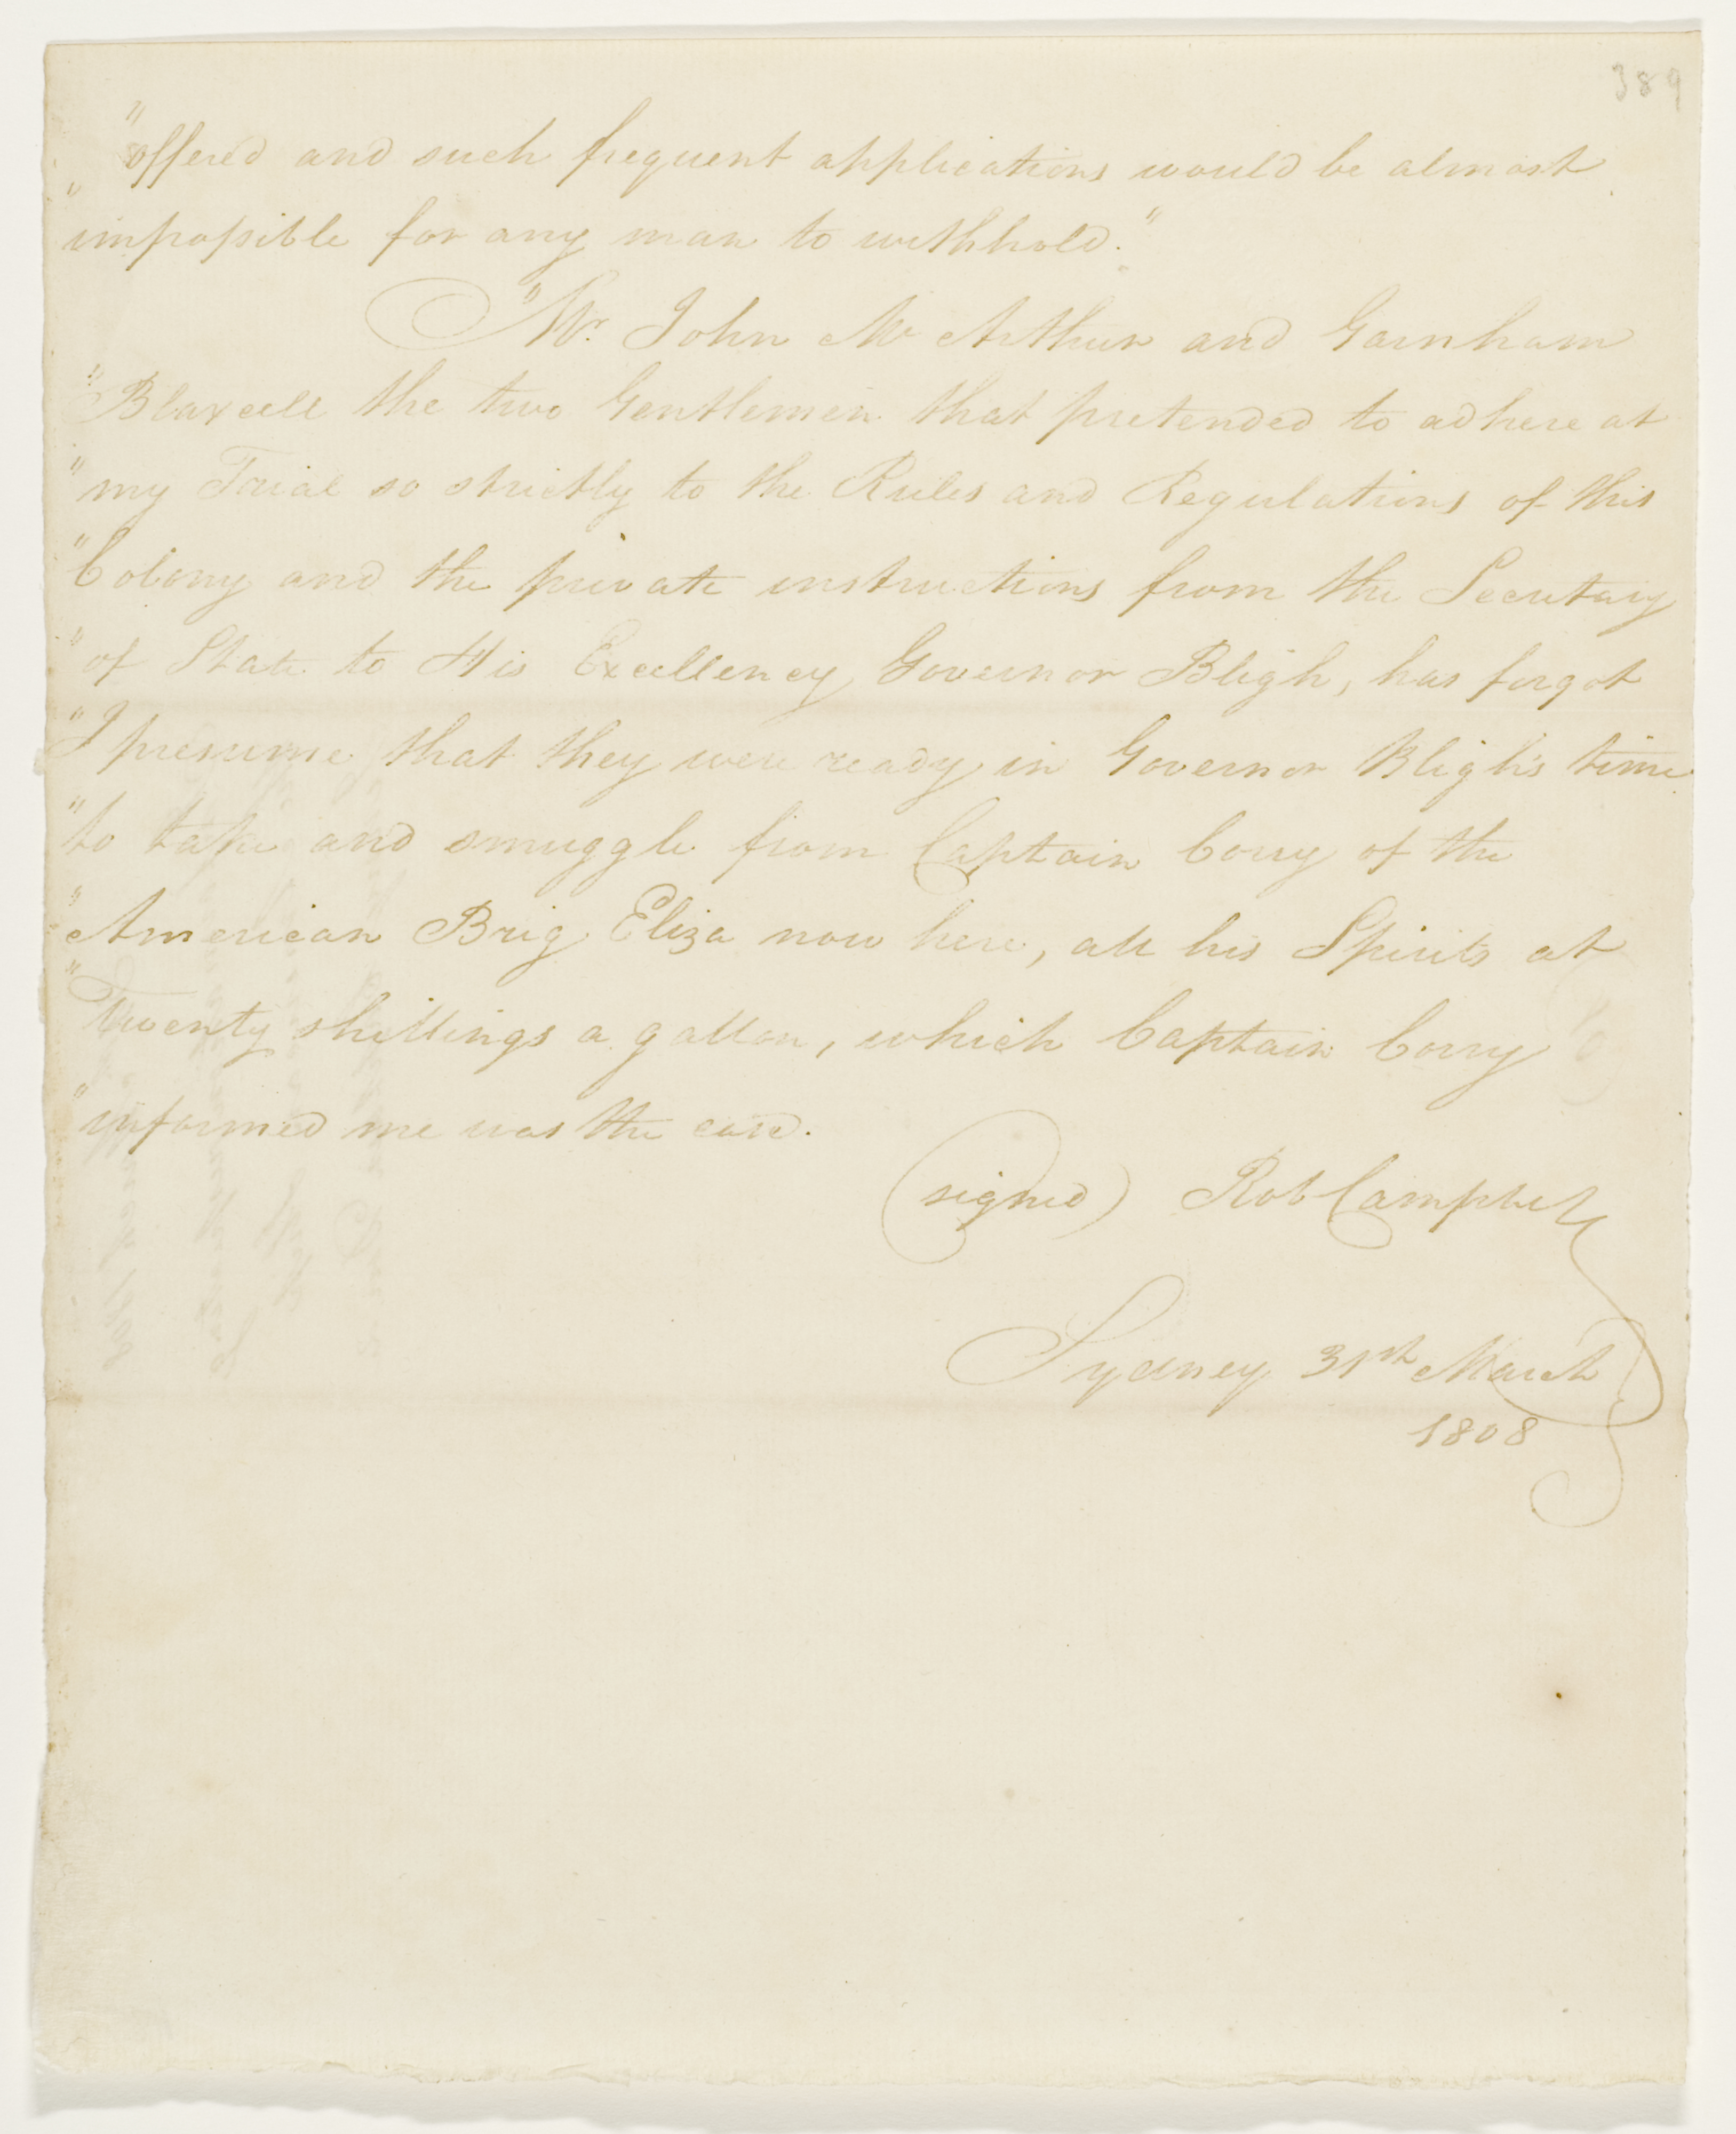 389
"offered and such frequent applications would be almost
"impossible for any man to withhold."
"Mr. John McArthur and Garnham
"Blaxcell the two Gentlemen that pretended to adhere at
"my Trial so strictly to the Rules and Regulations of this
"Colony and the private instructions from the Secretary
"of State to His Excellency Governor Bligh, has forgot
"I presume that they were ready in Governor Bligh's time
"to take and smuggle from Captain Corry of the
"American Brig Eliza now here, all his Spirits at
"Twenty shillings a gallon, which Captain Corry
"informed me was the case.
(signed) Rob Campbell
Sydney 31st March
1808